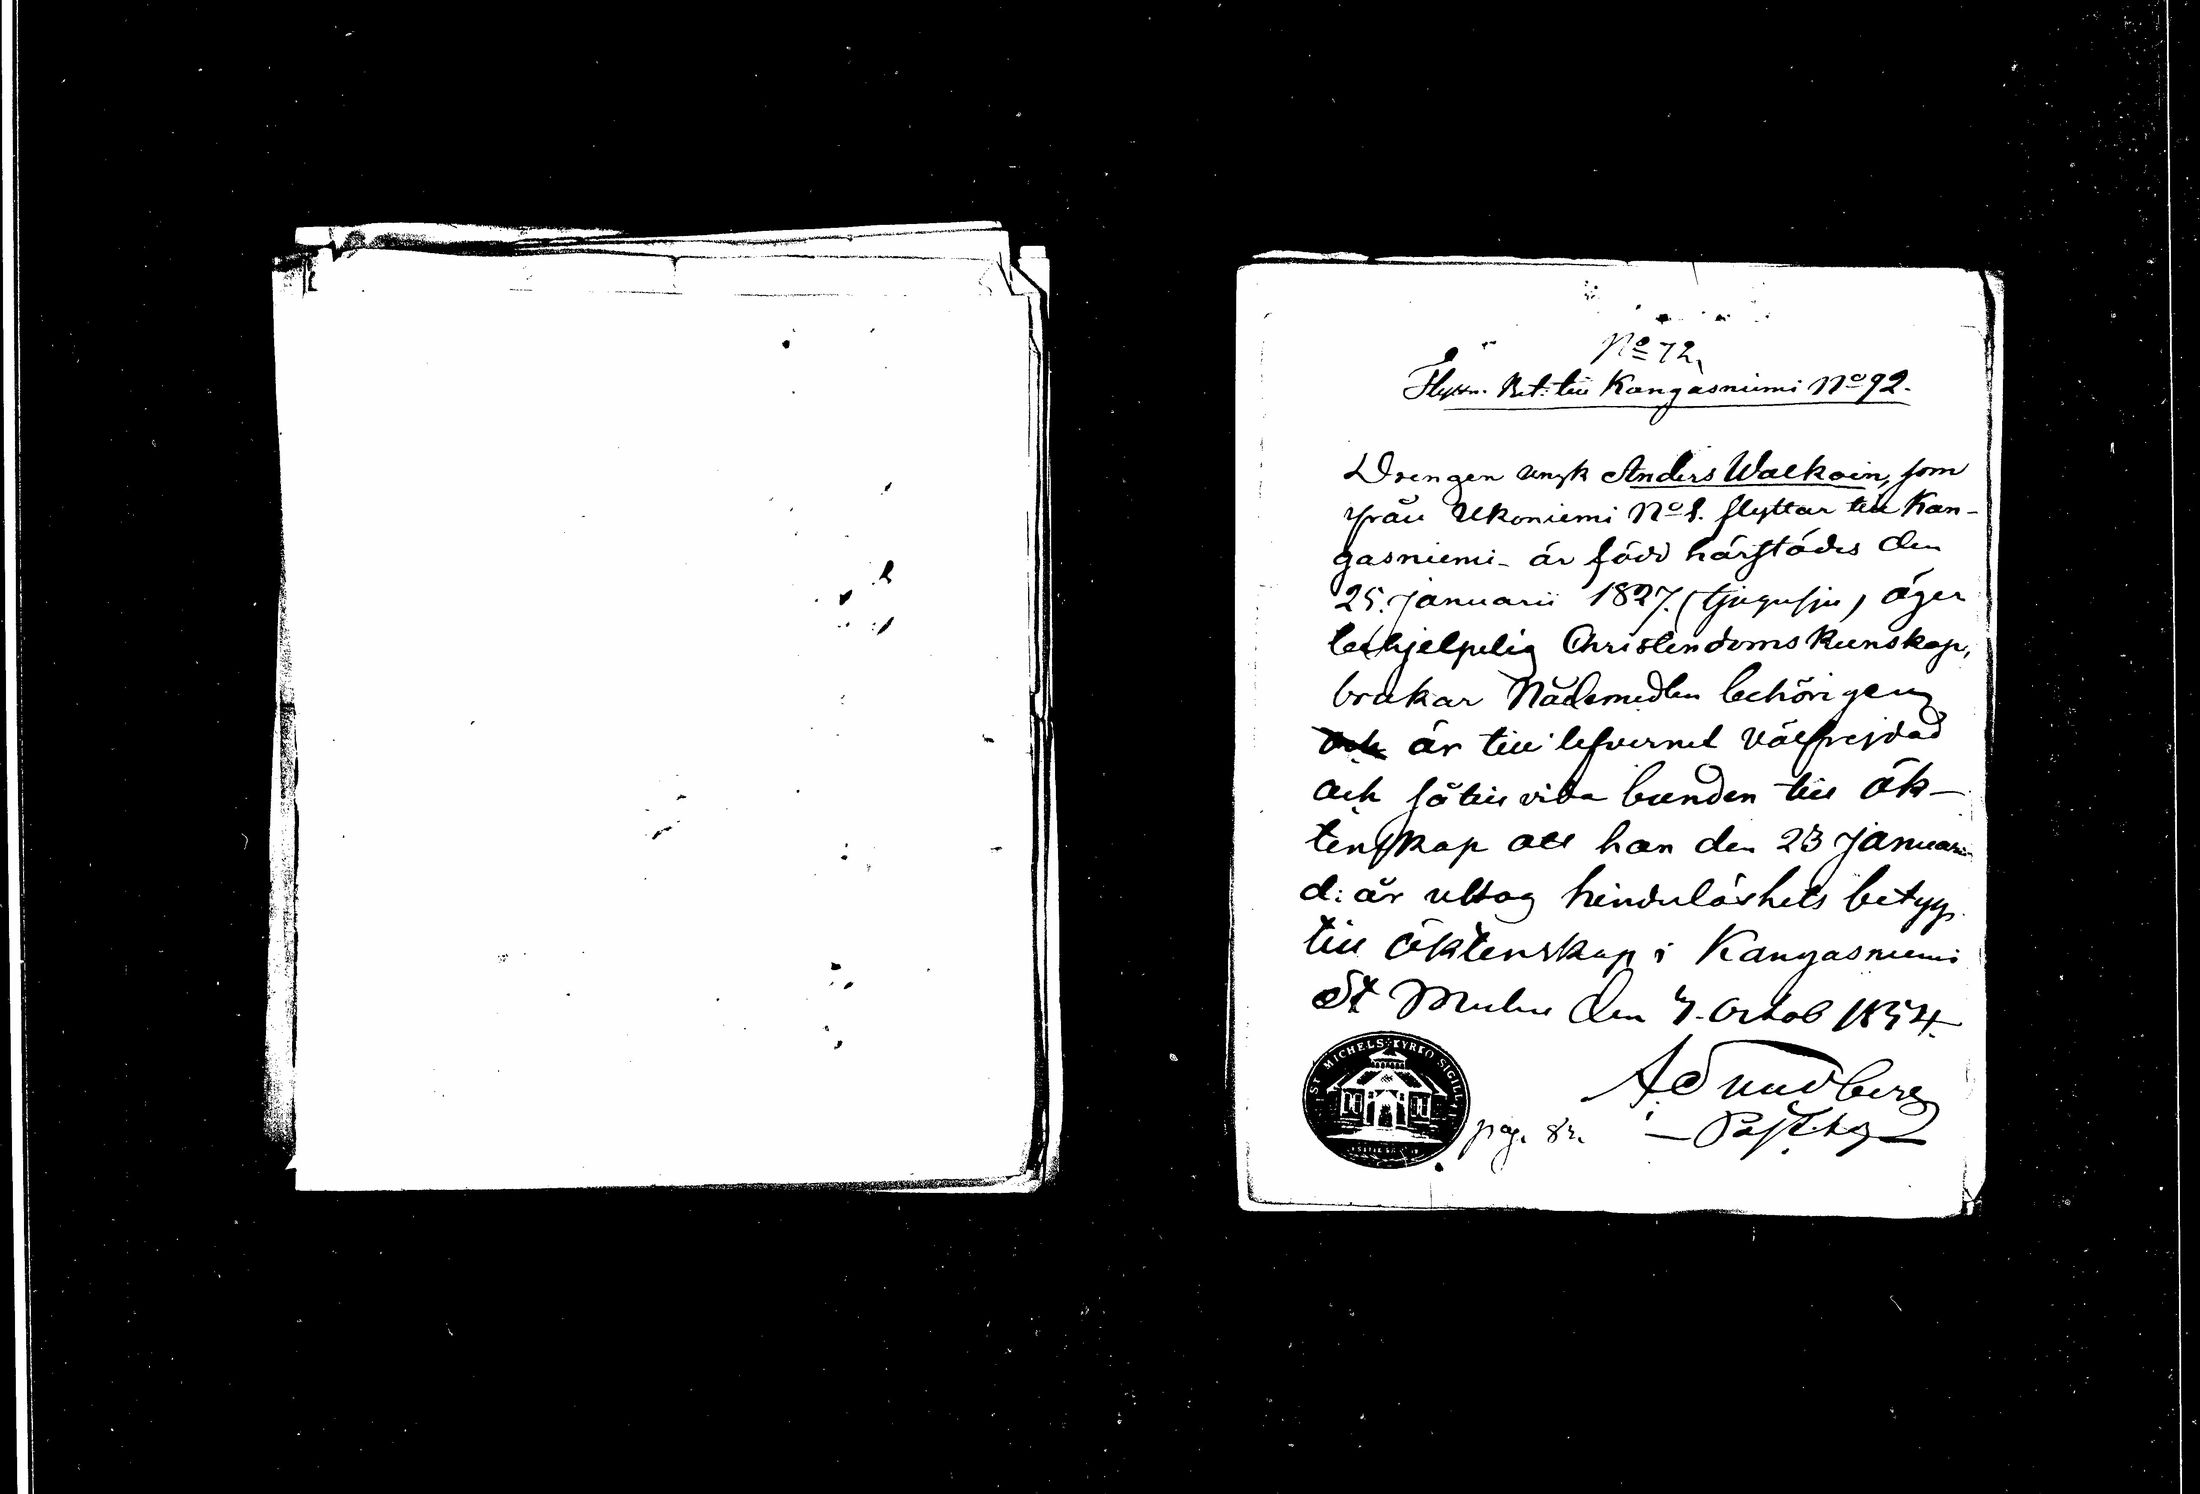 No 72.
Flyttn. Bet. till Kangasniemi No 92.
Drengen Anders Walkoin, som
från Ukoniemi No 1. flyttar till Kan-
gasniemi - är född härstädes den
25. Januarii 1827. (tjugusju) äger
behjelpelig Christendoms kunskap,
brukar Nådemedlen behörigen
och är till lefvernet välfrejdad
och såtillvida bunden till äk-
tenskap att han den 23 Januarii
d: år uttog hinderlöshets betyg
till äktenskap i Kangasniemi
St Michel den 7. Octob 1854.
pag. 82.
ST MICHELS KYRKO SIGILL